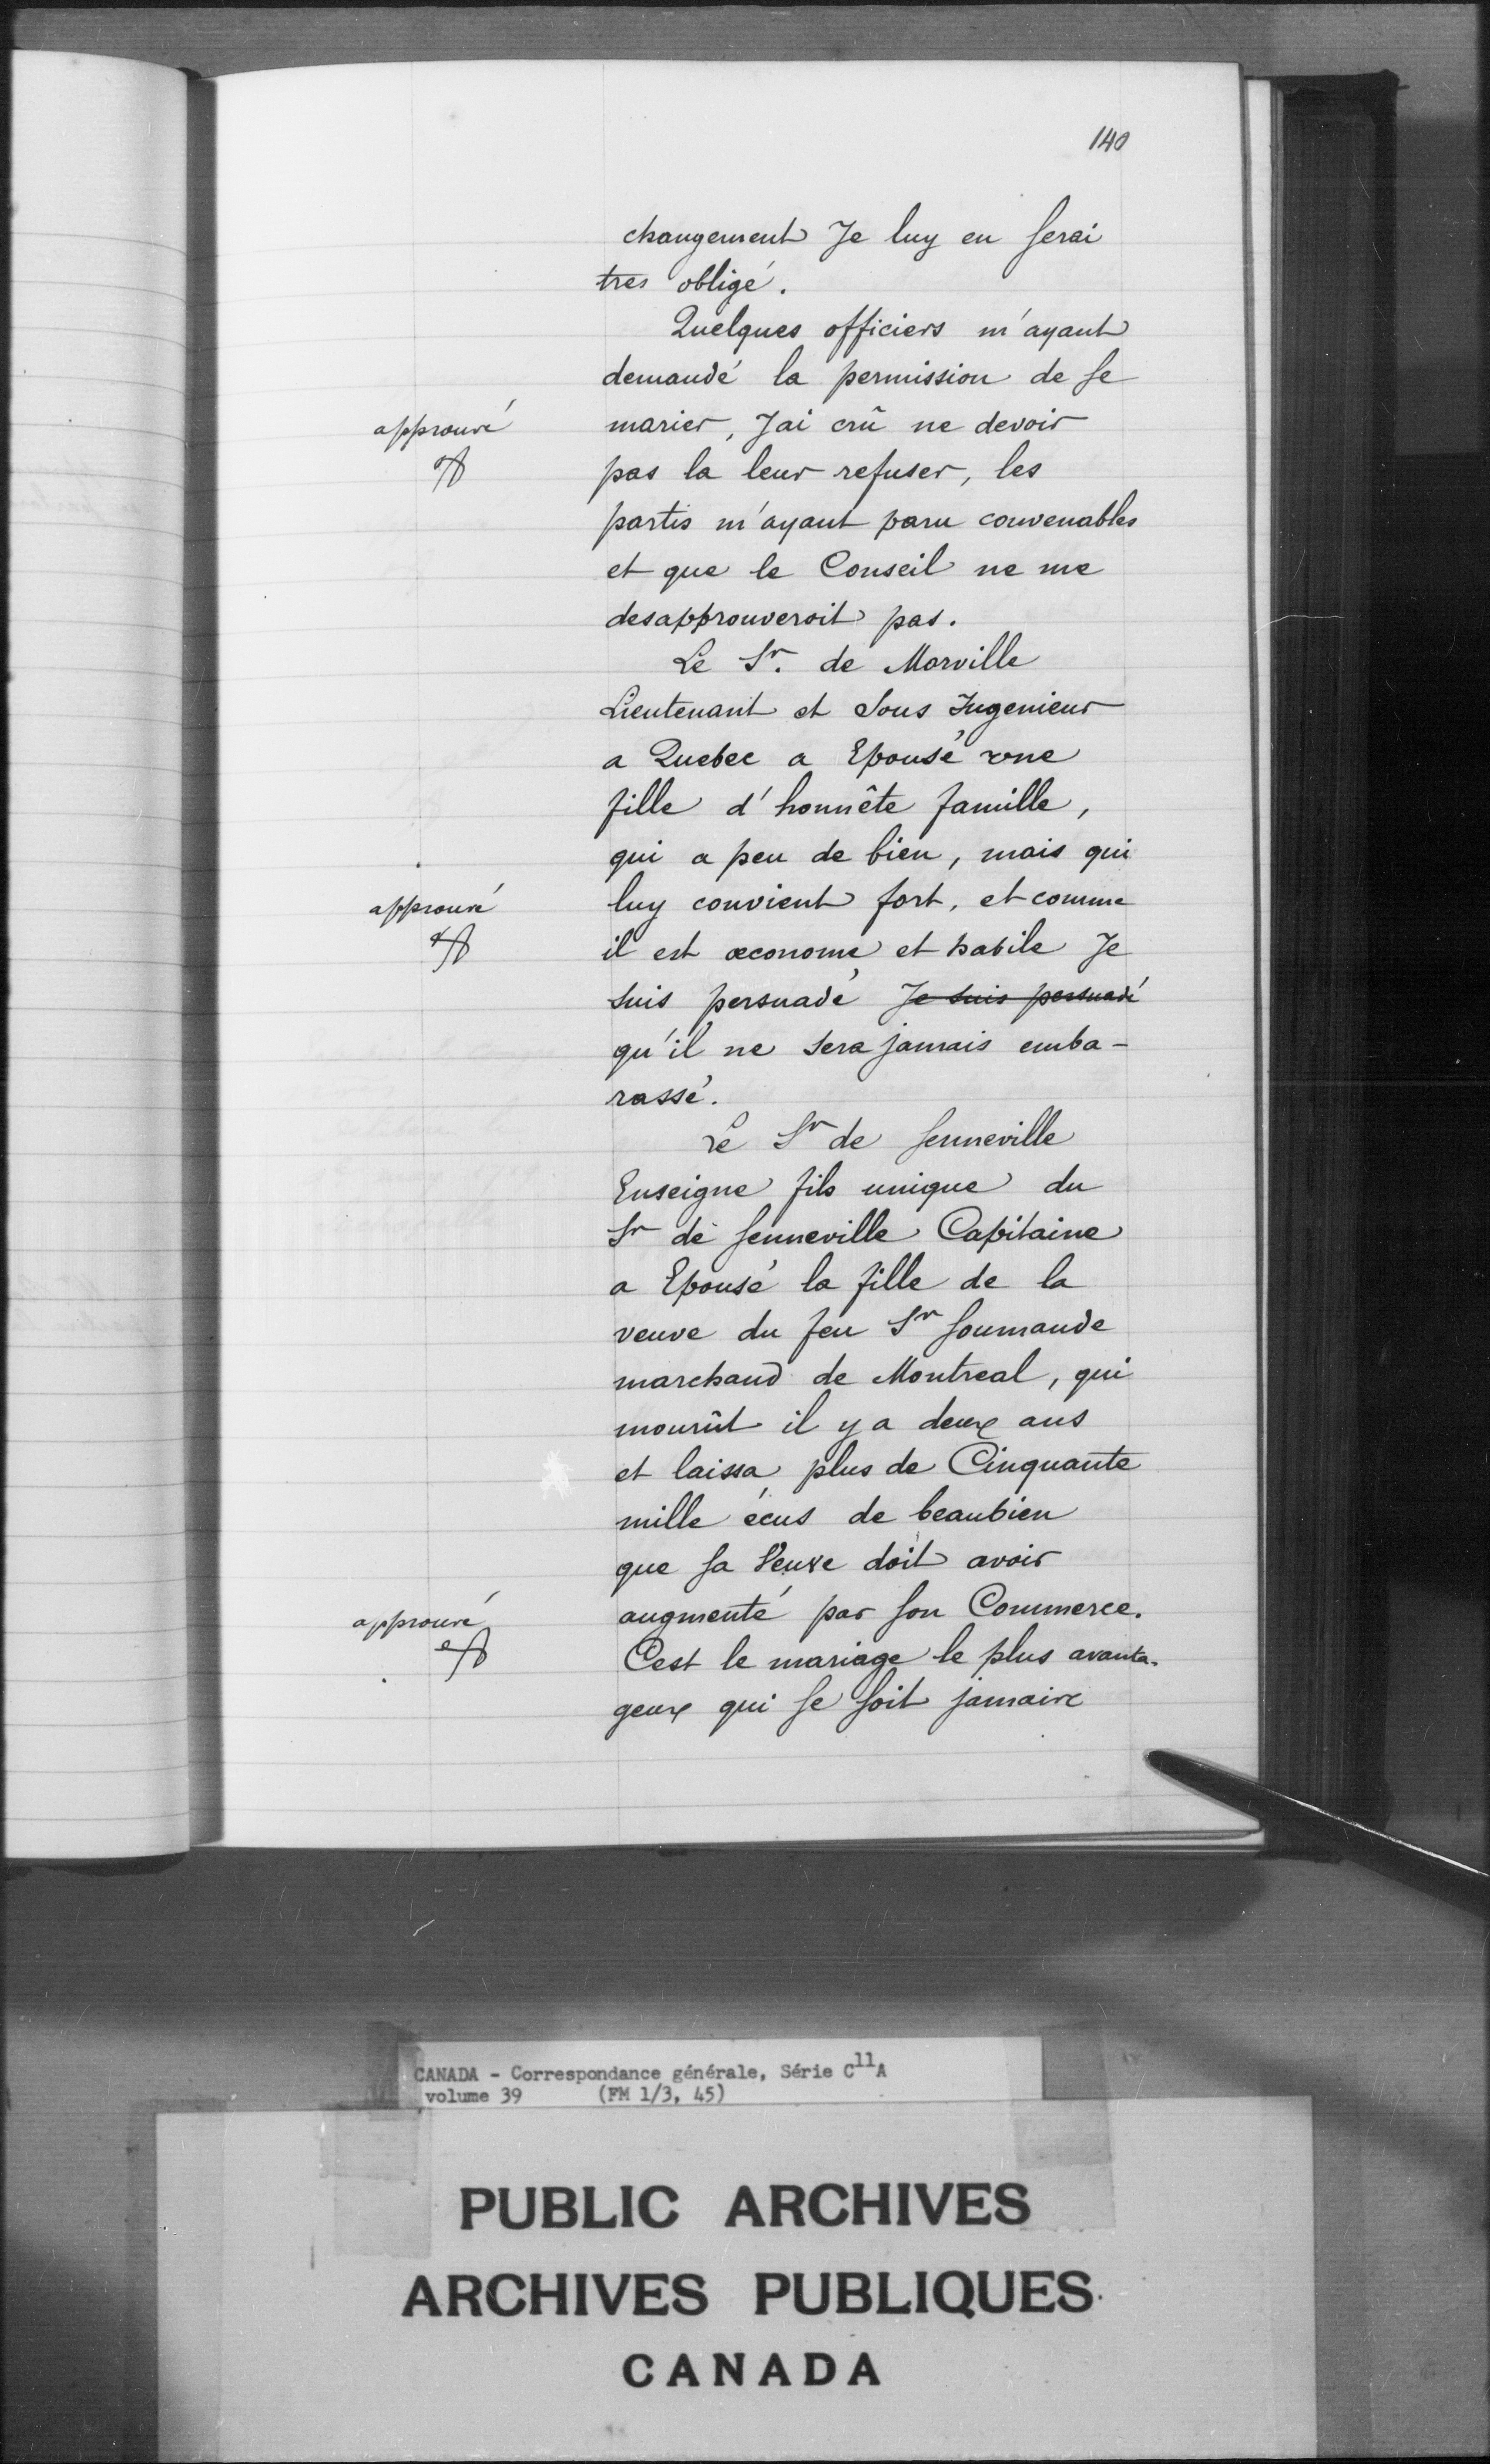 140
changement Je luy en serai
tres obligé.
Quelques officiers m'ayant
demandé la permission de se
approuvé
marier, Jai crû ne devoir
pas la leur refuser, les
partis m'ayant paru convenables
et que le Conseil ne me
desapprouveroit pas.
Le Sr. de Morville
Lieutenant et Sous Ingenieur
a Quebec a Epousé une
fille d'honnête famille,
qui a peu de bien, mais qui
approuvé
luy convient fort, et comme
il est œconome et habile Je
suis persuadé Je suis persuadé
qu'il ne sera jamais emba-
rassé.
Le Sr de Senneville
Enseigne fils unique du
Sr de Senneville Capitaine
a Epousé la fille de la
veuve du feu Sr Soumande
marchand de Montreal, qui
mourût il y a deux ans
et laissa plus de Cinquante
mille écus de beaubien
que sa Veuve doit avoir
approuvé
augmenté par son Commerce.
Cest le mariage le plus avanta-
geux qui se soit jamaire
CANADA - Correspondance générale, Série C11A
volume 39 (FM 1/3, 45)
PUBLIC ARCHIVES
ARCHIVES PUBLIQUES
CANADA